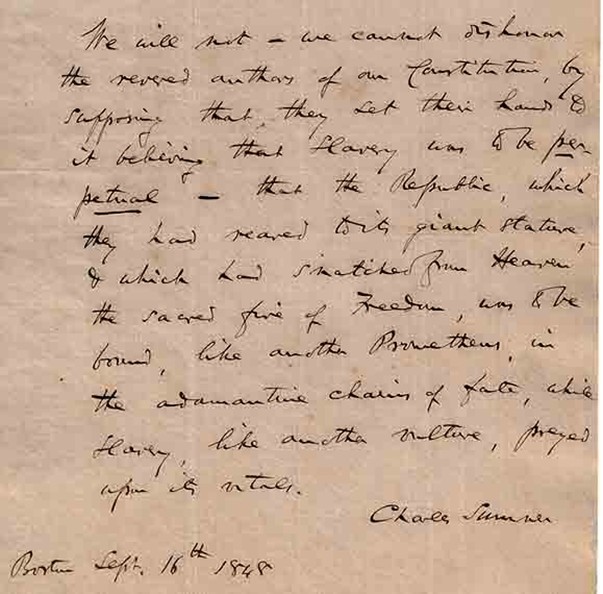 We will not – we cannot dishonor
the revered authors of our Constitution, by
supposing that, they set their hands to
it believing that Slavery was to be per-
petual – that the Republic, which
they had reared to its giant stature,
& which had snatched from Heaven
the sacred fire of Freedom, was to be
bound, like another Prometheus, in
the adamantine chains of fate, while
Slavery, like another vulture, preyed
upon its vitals.
Charles Sumner
Boston Sept. 16th 1848